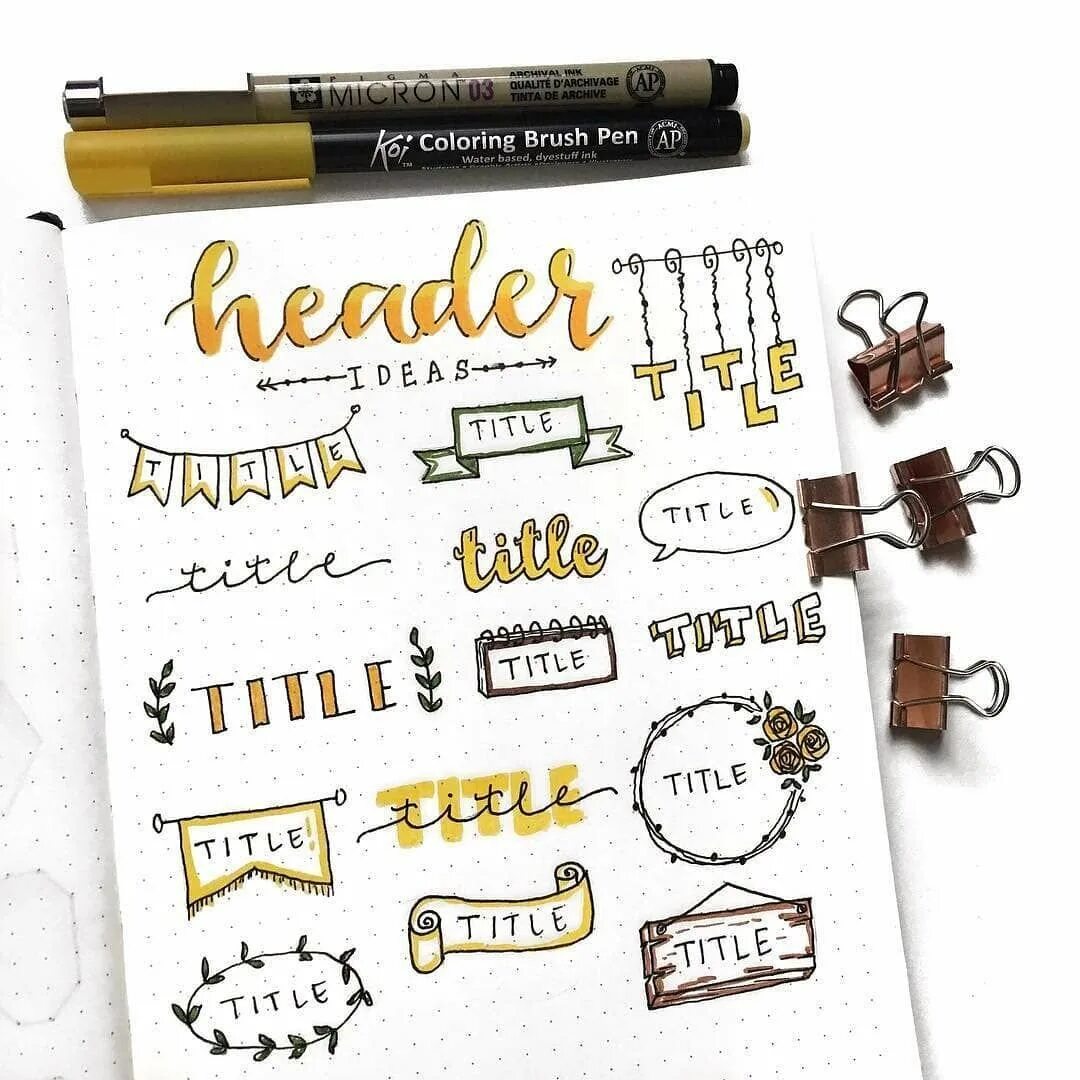 PIGMA
MICRON 03
ARCHIVAL INK
QUALITÉ D'ARCHIVAGE
TINTA DE ARCHIVE
ACMI
AP
Koi™ Coloring Brush Pen
Water based, dyestuff ink
ACMI
AP
header
IDEAS
TITLE
TITLE
TITLE
title
title
TITLE
TITLE
TITLE
TITLE
TITLE!
TITLE
title
TITLE
TITLE
TITLE
TITLE